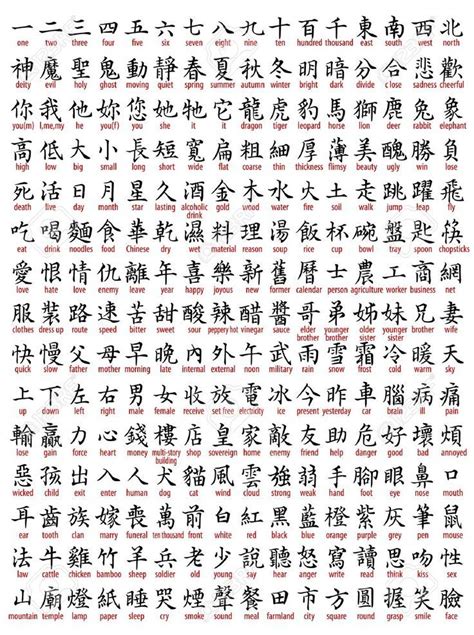 一 二 三 四 五 六 七 八 九 十 百 千 東 南 西 北
one two three four five six seven eight nine ten hundred thousand east south west north
神 魔 聖 鬼 動 靜 春 夏 秋 冬 明 暗 分 合 悲 歡
deity evil holy ghost moving quiet spring summer autumn winter bright dark divide combine sadness cheerful
你 我 他 妳 您 她 牠 它 龍 虎 豹 馬 獅 鹿 兔 象
you(m) I,me,my he you(f) you she it it dragon tiger leopard horse lion deer rabbit elephant
高 低 大 小 長 短 寬 扁 粗 細 厚 薄 美 醜 勝 負
high low big small long short wide flat coarse thin thickness flimsy beauty ugly win lose
死 活 日 月 星 久 酒 金 木 水 火 土 走 跳 躍 飛
death live day month star lasting alcoholic drink gold wood water fire soil walk jump leap fly
吃 喝 麵 食 華 乾 濕 料 理 湯 飯 杯 碗 盤 匙 筷
eat drink noodles food Chinese dry wet material reason soup rice cup bowl tray spoon chopsticks
愛 恨 情 仇 離 年 喜 樂 新 舊 曆 士 農 工 商 網
love hate love enemy leave year happy joyful new former calendar person agriculture worker business net
服 裝 路 速 苦 甜 酸 辣 醋 醬 哥 弟 姊 妹 兄 妻
clothes dress up route speed bitter sweet sour peppery hot vinegar sauce elder brother younger brother older sister younger sister elder brother wife
快 慢 父 母 早 晚 內 外 午 武 雨 雪 霜 冷 暖 天
quick slow father mother morning night internal external noon military rain snow frost cold warm sky
上 下 左 右 男 女 收 放 電 冰 今 昨 車 腦 病 痛
up down left right male female receive set free electricity ice present yesterday car brain ill pain
輸 贏 力 心 錢 樓 店 皇 家 敵 友 助 危 好 壞 煩
lose gain force heart money multi-story building shop sovereign home enemy friend help danger good bad annoyed
惡 孩 出 入 人 犬 貓 風 雲 強 弱 手 腳 眼 鼻 口
wicked child exit enter human dog cat wind cloud strong weak hand foot eye nose mouth
耳 齒 族 嫁 喪 萬 前 白 紅 黑 藍 橙 紫 黃 筆 鼠
ear tooth clan marry ten thousand front white red black blue orange purple pen mouse
法 牛 雞 竹 羊 兵 老 少 說 聽 怒 寫 讀 思 吻 性
law cattle chicken bamboo sheep soldier old young say listen anger write read think kiss sex
山 廟 燈 紙 睡 哭 煙 聲 餐 田 市 方 圓 握 笑 臉
mountain temple lamp paper sleep cry smoke sound meal farmland city square round grasp smile face